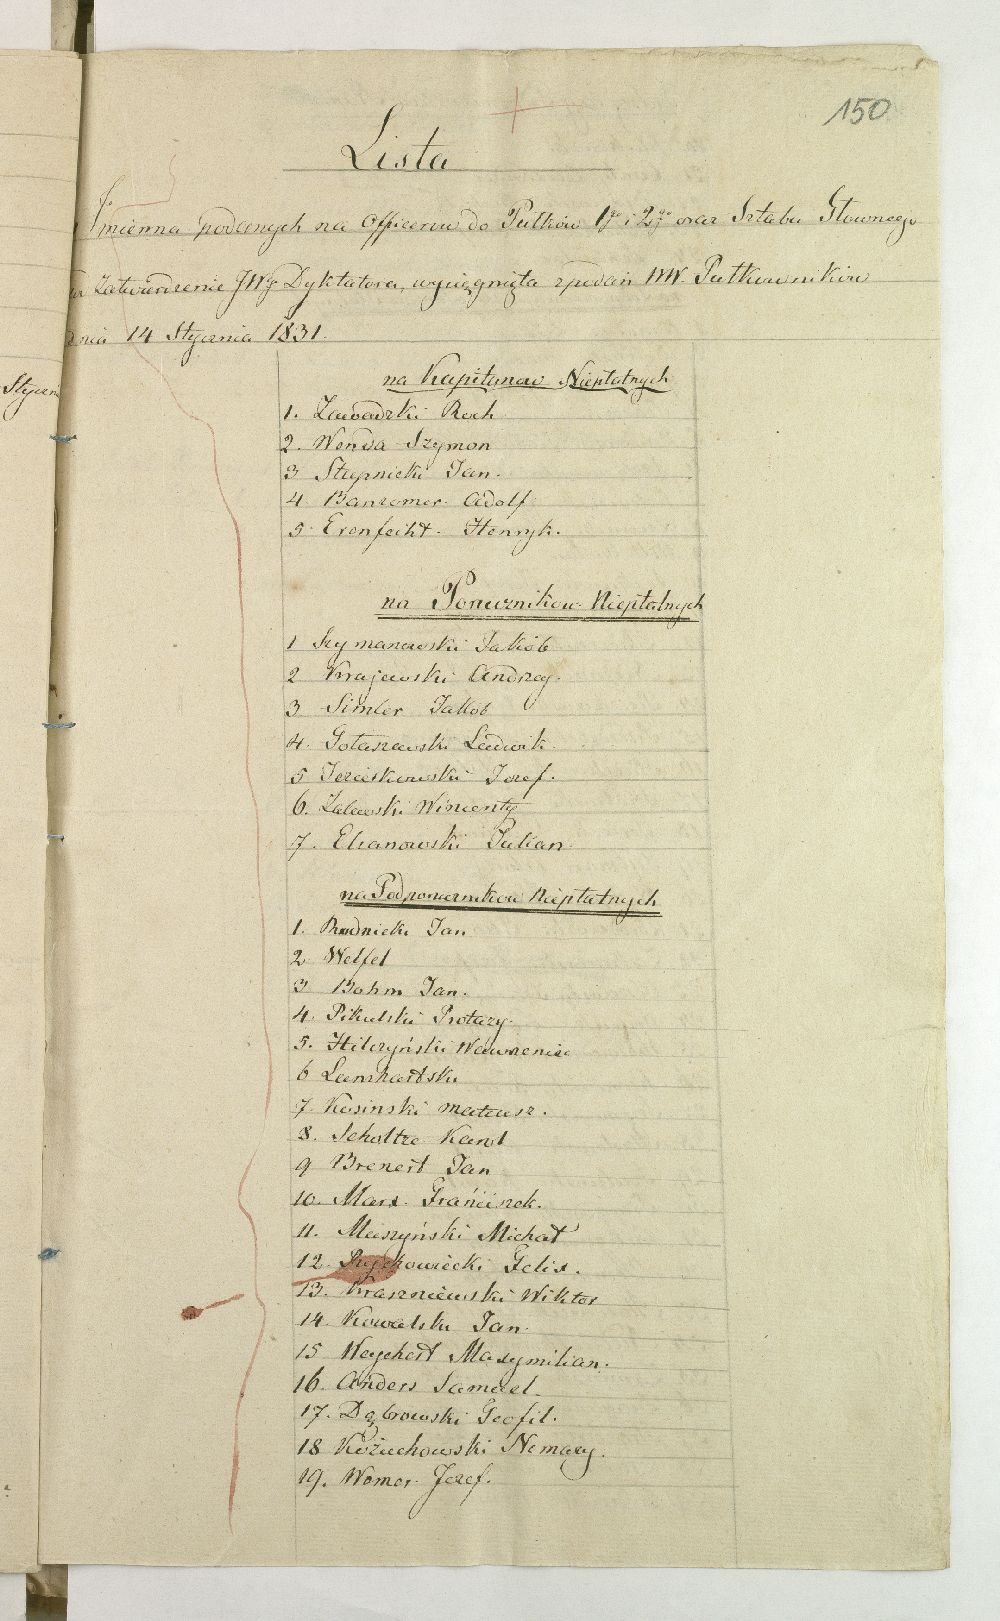 150
Lista
Imienna podanych na Officerów do Pułków 1go i 2go oraz Sztabu Głownego
Zatwierdzenie JWg Dyktatora, wyciągnięta z podań WW. Pułkowników
dnia 14 Stycznia 1831.
Stycz
na Kapitanow Niepłatnych
1. Zawadzki Roch
2. Wenda Szymon
3 Stępnicki Jan.
4 Banzemer Adolf
5. Erenfeicht. Henryk.
na Porucznikow Niepłatnych
1 Szymanowski Jakób
2 Krajewski Andrzey.
3 Simler Jakob
4. Gołaszewski Ludwik.
5 Jozef.
6. Zalewski Wincenty
7. Elzanowski Julian
na Podporucznikow Niepłatnych
1. Rudnicki Jan
2 Welfel
3 Bohm Jan.
4. Pikulski Protazy.
5. Hilczyński Wawrzeniec
6 Lamhartski
7. Kosinski Mateusz.
8. Scholtze Karol
9 Brenert Jan
10. Marx Franciszek.
11. Miaszyński Michał
12. Felix.
13. Kraszniewski Wiktor
14. Kowalski Jan.
15 Weychert Maxymilian.
16. Anders Samuel.
17. Dąbrowski Teofil.
18 Kożuchowski Nemazy.
19. Werner Jozef.